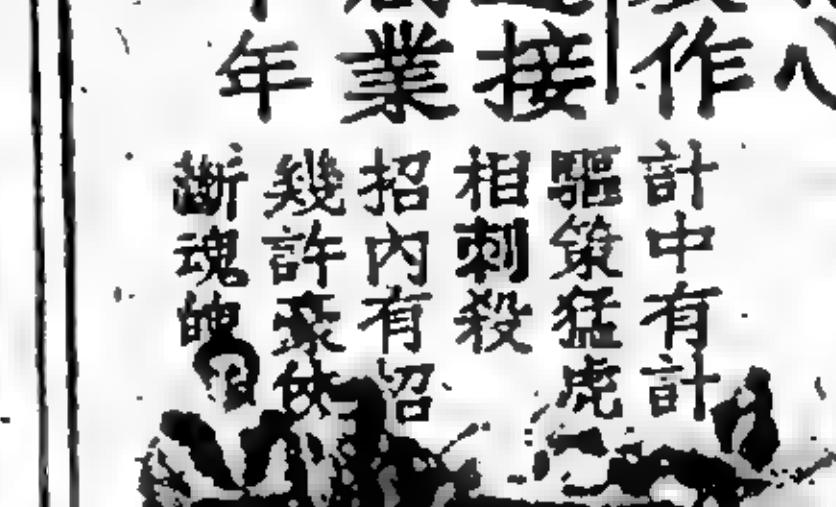 心
作
接
業
年
計中有計
驅策猛虎
相刺殺
招內有招
幾許豪俠
斷魂